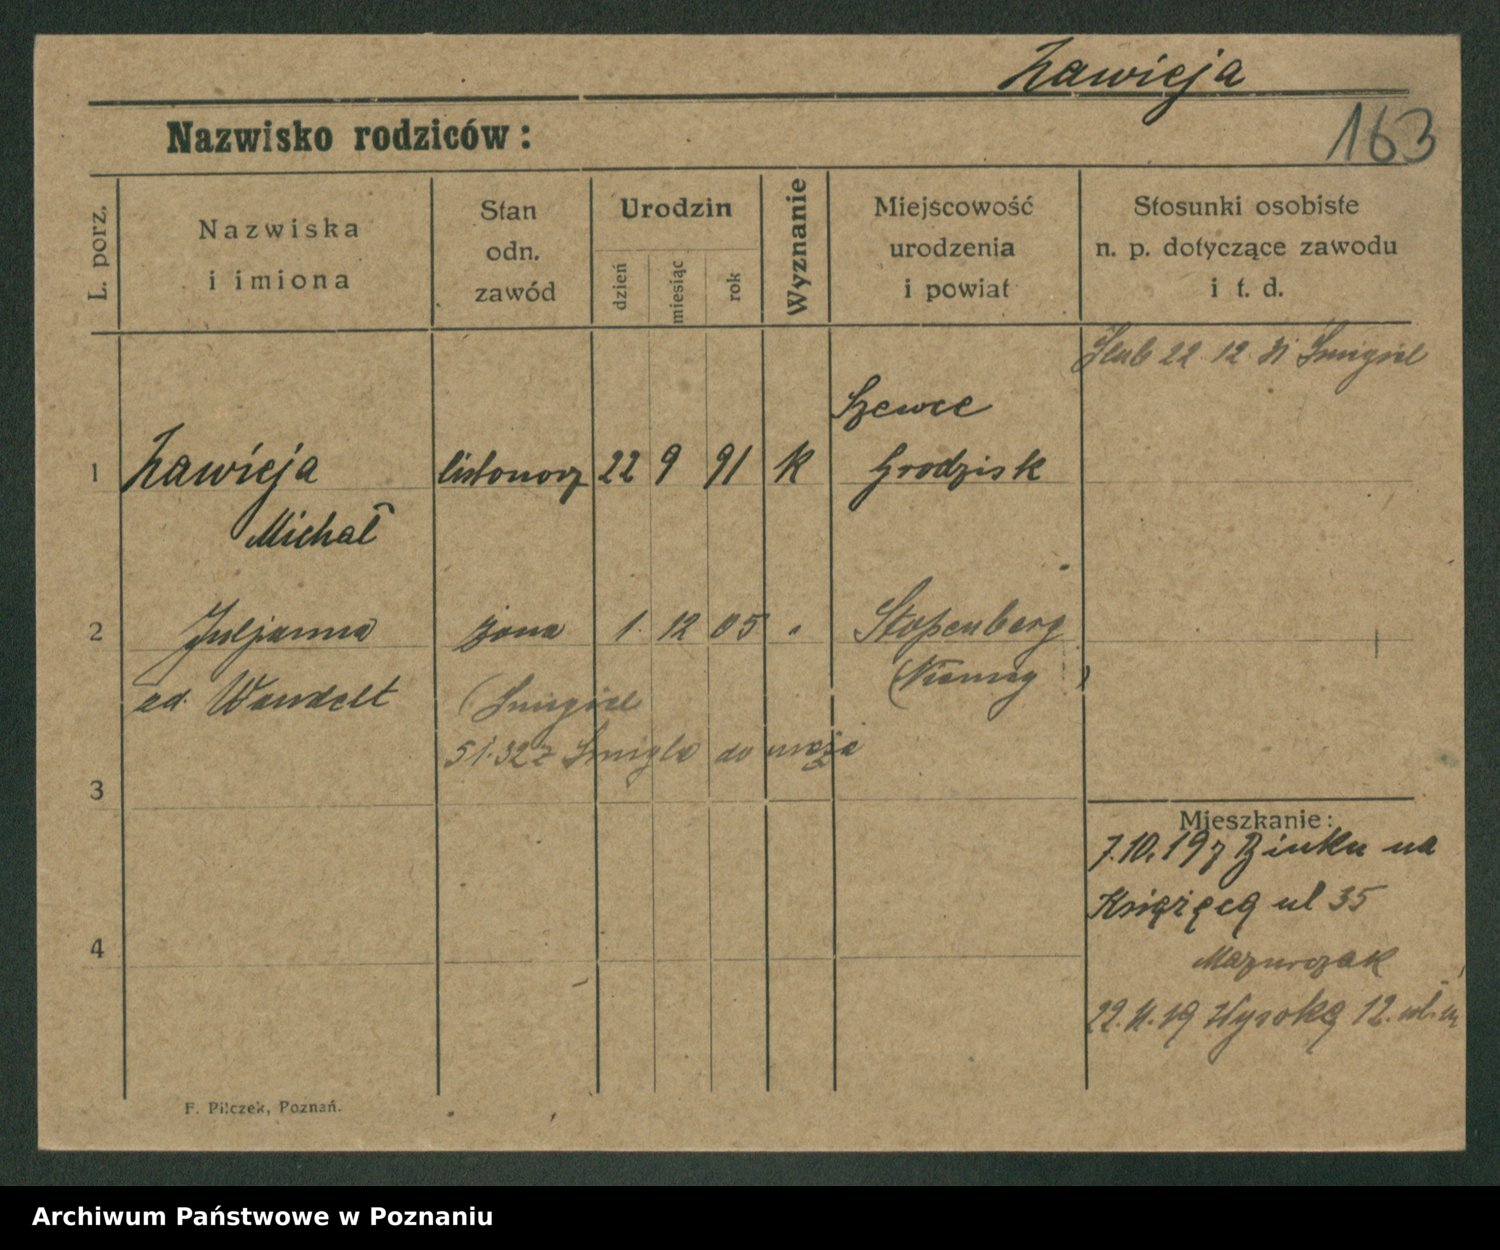 Zawieja
163
Nazwisko rodziców:
L. porz.
Nazwiska
i imiona
Stan
odn.
zawód
Urodzin
dzień
miesiąc
rok
Wyznanie
Miejscowość
urodzenia
i powiat
Stosunki osobiste
n. p. dotyczące zawodu
i t. d.
Ślub 22 12 31 Śmigiel
Szewce
1 Zawieja listonosz 22 9 91 K Grodzisk
Michał
2 Juljanna żona 1. 12 05 " Stopenberg
(Niemcy)
zd. Wandelt (Śmigiel
5 1.32 z Śmigla do męża
3
Mieszkanie:
7.10.19 z Buku na
Książęcą ul 35
Mazurczak
4
22.11.19 Wysoka 12.
F. Pilczek, Poznań.
Archiwum Państwowe w Poznaniu